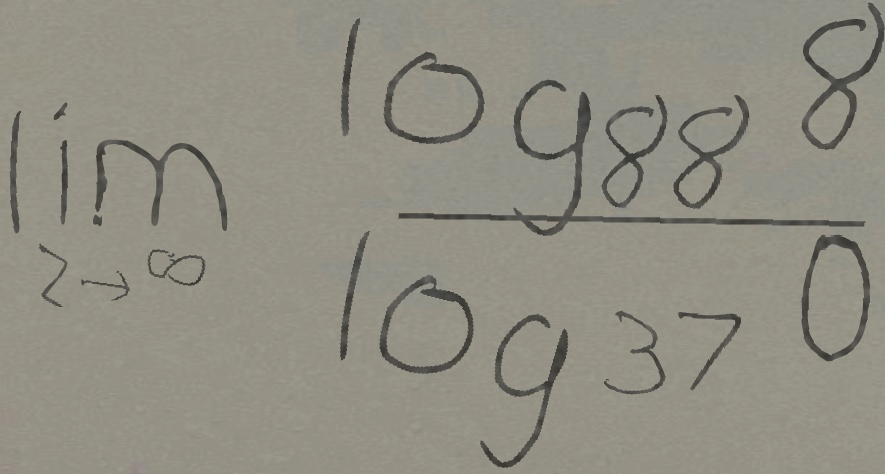 lim log₈₈ 8
z → ∞ log₃₇ 0